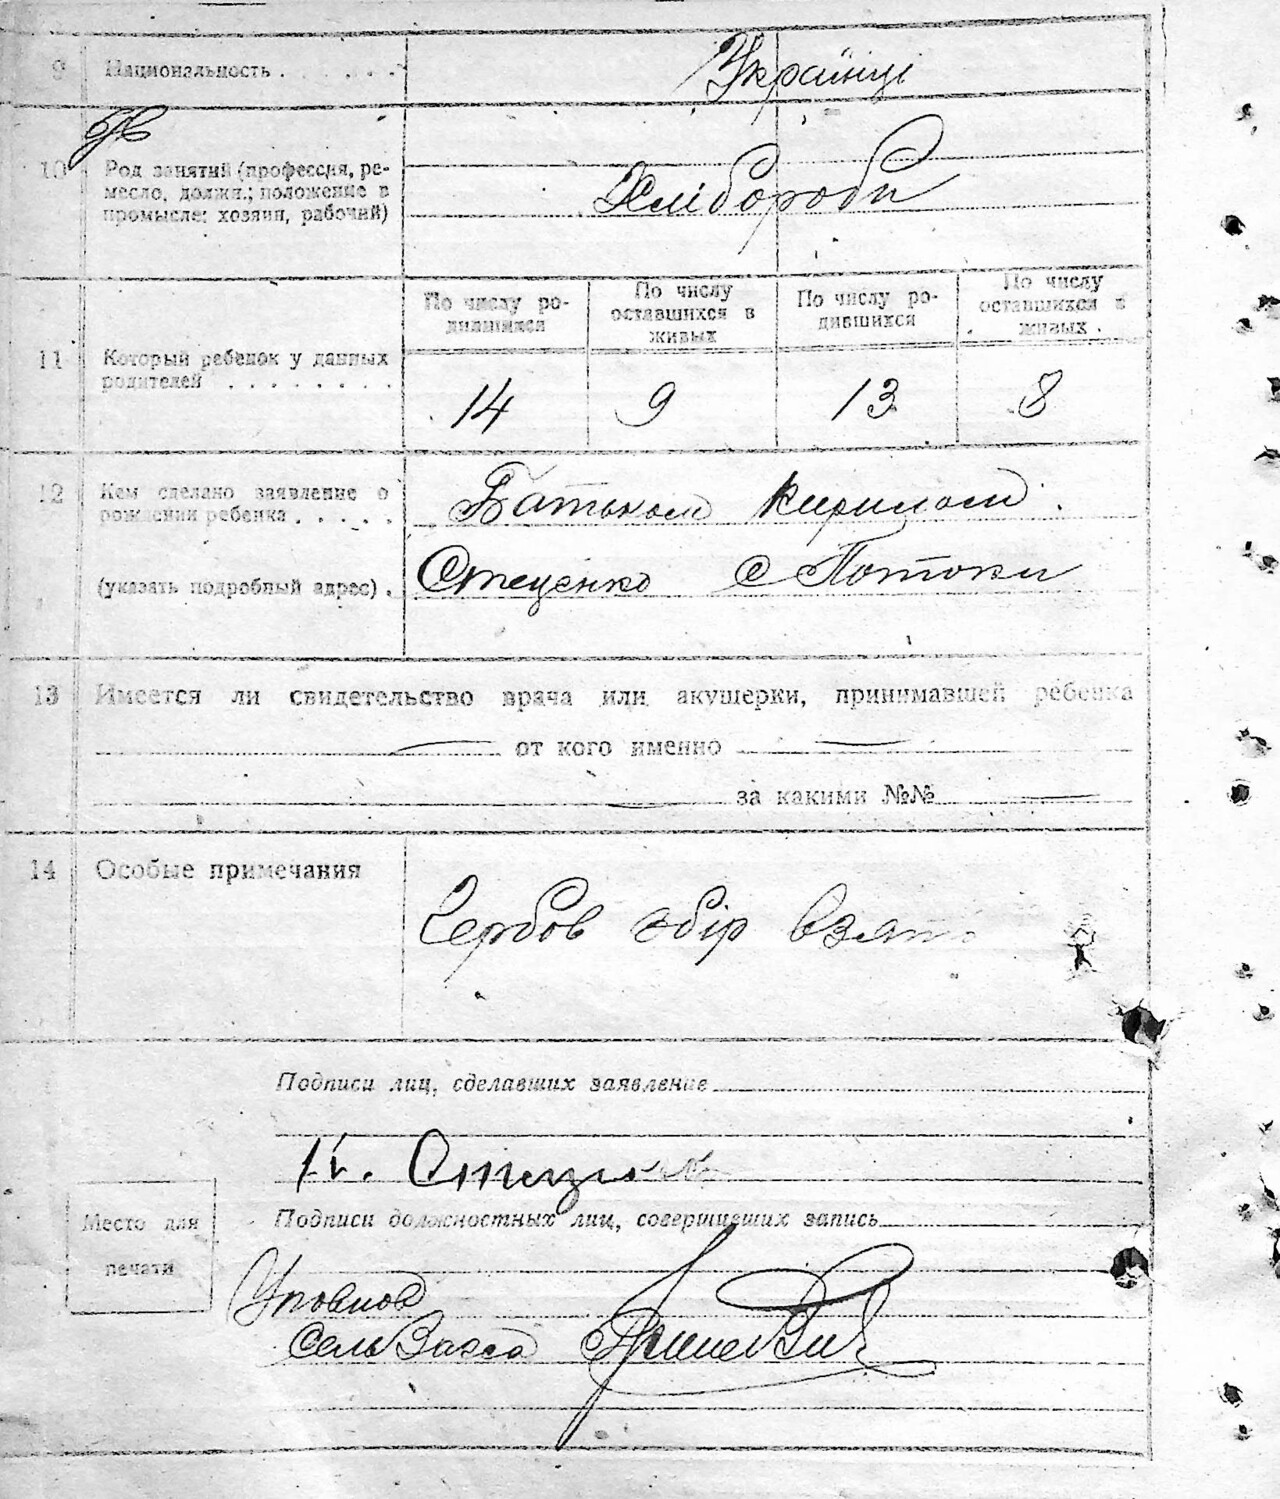 9 Национальность . . . . . . Українці
10 Род занятий (профессия, ре-
месло, должн.; положение в
промысле; хозяин, рабочий) Хлібороби
По числу ро-
дившихся
По числу
оставшихся в
живых
По числу ро-
дившихся
По числу
оставшихся в
живых
11 Который ребенок у данных
родителей . . . . . . . .
14 9 13 8
12 Кем сделано заявление о
рождении ребенка . . . . . Батьком Кирилом
(указать подробный адрес) . Стеценко с Потоки
13 Имеется ли свидетельство врача или акушерки, принимавшей ребенка
от кого именно
за какими №№
14 Особые примечания
Гербов збір взято
Подписи лиц, сделавших заявление
К. Стеценко
Подписи должностных лиц, совершивших запись
Место для
печати
Уповнов
Сель Загса